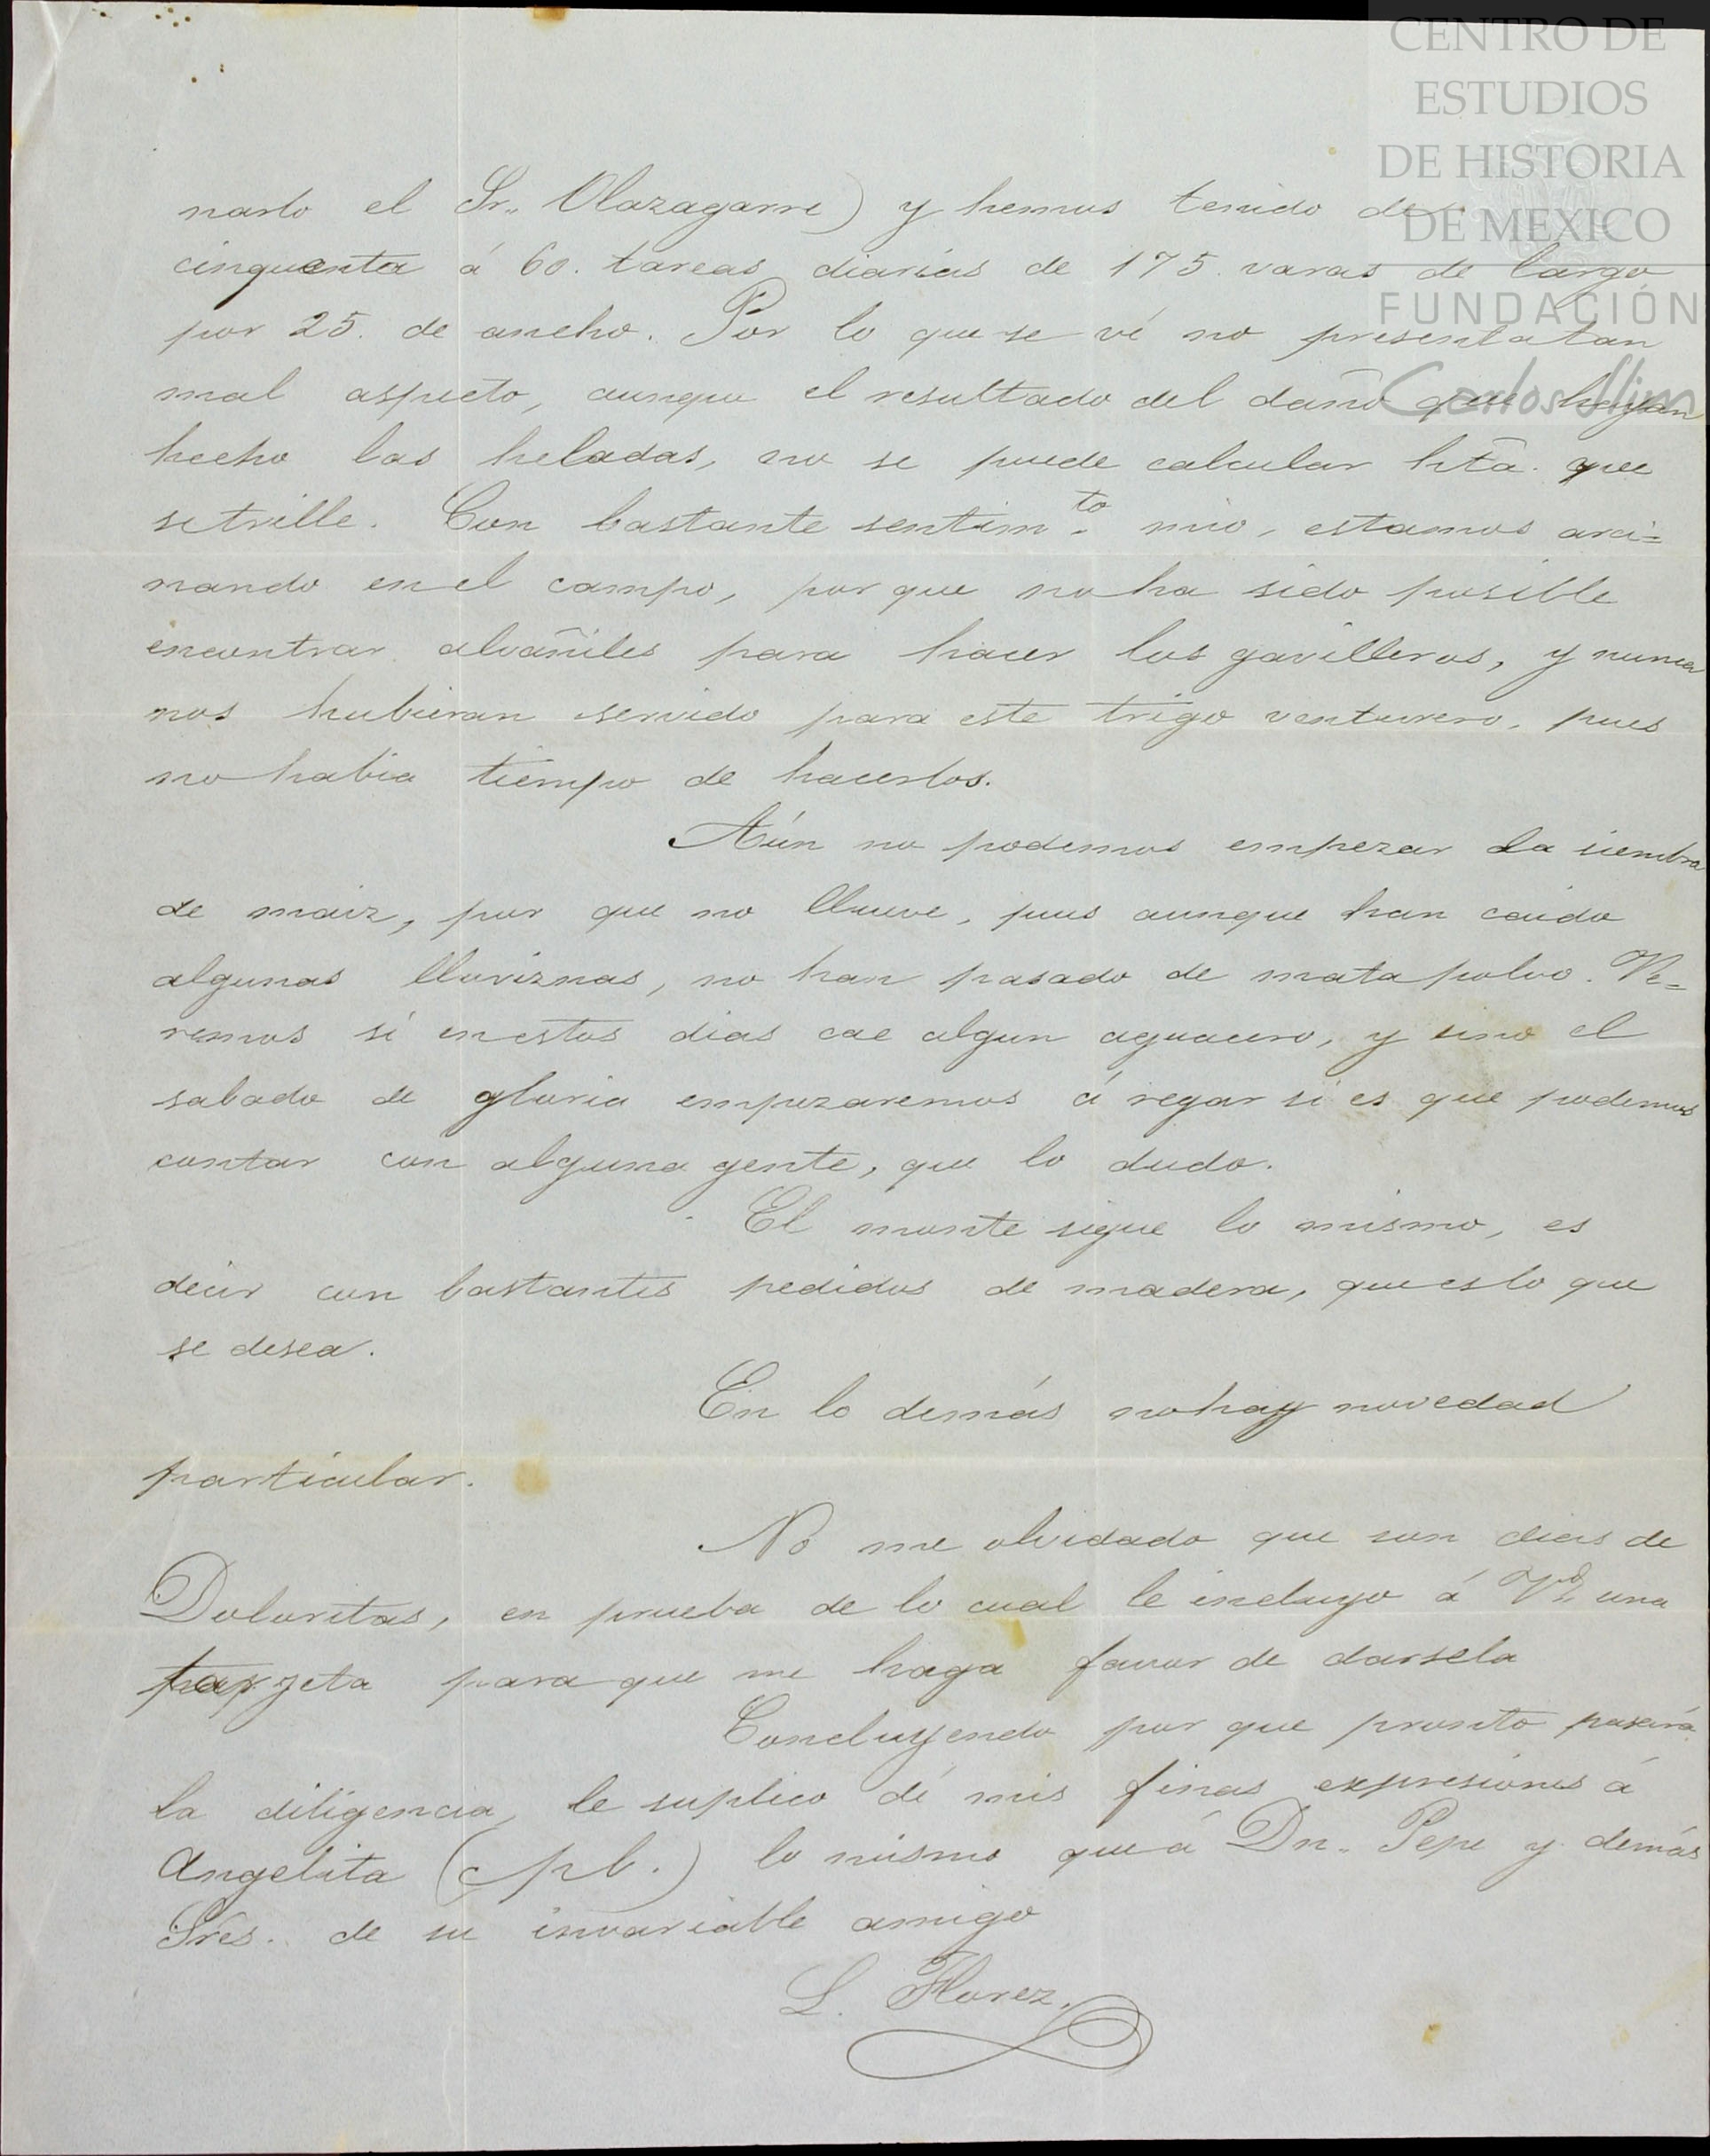 CENTRO DE
ESTUDIOS
DE HISTORIA
DE MEXICO
FUNDACIÓN
Carlos Slim
narlo el Sr. Olazagarre) y hemos tenido de
cinquenta á 60. tareas diarias de 175. varas de largo
por 25. de ancho. Por lo que se vé no presenta tan
mal aspecto, aunque el resultado del daño que hayan
hecho las heladas, no se puede calcular hta. que
se trille. Con bastante sentimto. mio, estamos arci=
nando en el campo, por que no ha sido posible
encontrar alvañiles para hacer los gavilleros, y nunca
nos hubieran servido para este trigo venturero, pues
no habia tiempo de hacerlos.
Aún no podemos empezar la siembra
de maiz, por que no llueve, pues aunque han caido
algunas lloviznas, no han pasado de mata polvo. Ve=
remos si en estos dias cae algun aguacero, y sino el
sabado de gloria empezaremos á regar si es que podemos
contar con alguna gente, que lo dudo.
El monte sigue lo mismo, es
decir con bastantes pedidos de madera, que es lo que
se desea.
En lo demás no hay novedad
particular.
No me olvidado que son dias de
Doloritas, en prueba de lo cual le incluyo á Vd. una
tarjeta para que me haga favor de darsela
Concluyendo por que pronto pasará
la diligencia, le suplico dé mis finas expresiones á
Angelita (cpb.) lo mismo que á Dn. Pepe y demás
Sres. de su invariable amigo
L. Florez.